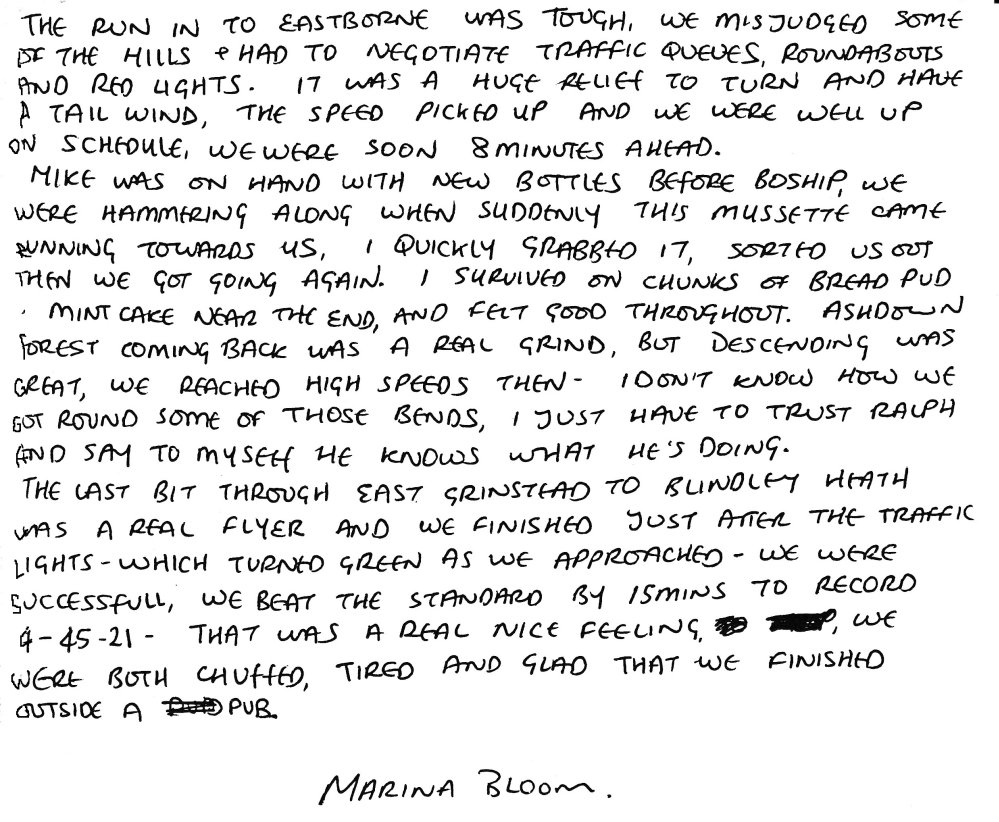 THE RUN IN TO EASTBORNE WAS TOUGH, WE MISJUDGED SOME
OF THE HILLS + HAD TO NEGOTIATE TRAFFIC QUEUES, ROUNDABOUTS
AND RED LIGHTS. IT WAS A HUGE RELIEF TO TURN AND HAVE
A TAIL WIND, THE SPEED PICKED UP AND WE WERE WELL UP
ON SCHEDULE, WE WERE SOON 8 MINUTES AHEAD.
MIKE WAS ON HAND WITH NEW BOTTLES BEFORE BOSHIP, WE
WERE HAMMERING ALONG WHEN SUDDENLY THIS MUSSETTE CAME
RUNNING TOWARDS US, I QUICKLY GRABBED IT, SORTED US OUT
THEN WE GOT GOING AGAIN. I SURVIVED ON CHUNKS OF BREAD PUD
MINT CAKE NEAR THE END, AND FELT GOOD THROUGHOUT. ASHDOWN
FOREST COMING BACK WAS A REAL GRIND, BUT DESCENDING WAS
GREAT, WE REACHED HIGH SPEEDS THEN - I DON'T KNOW HOW WE
GOT ROUND SOME OF THOSE BENDS, I JUST HAVE TO TRUST RALPH
AND SAY TO MYSELF HE KNOWS WHAT HE'S DOING.
THE LAST BIT THROUGH EAST GRINSTEAD TO BLINDLEY HEATH
WAS A REAL FLYER AND WE FINISHED JUST AFTER THE TRAFFIC
LIGHTS - WHICH TURNED GREEN AS WE APPROACHED - WE WERE
SUCCESSFULL, WE BEAT THE STANDARD BY 15MINS TO RECORD
4-45-21 - THAT WAS A REAL NICE FEELING, WE
WERE BOTH CHUFFED, TIRED AND GLAD THAT WE FINISHED
OUTSIDE A PUB.
MARINA BLOOM.